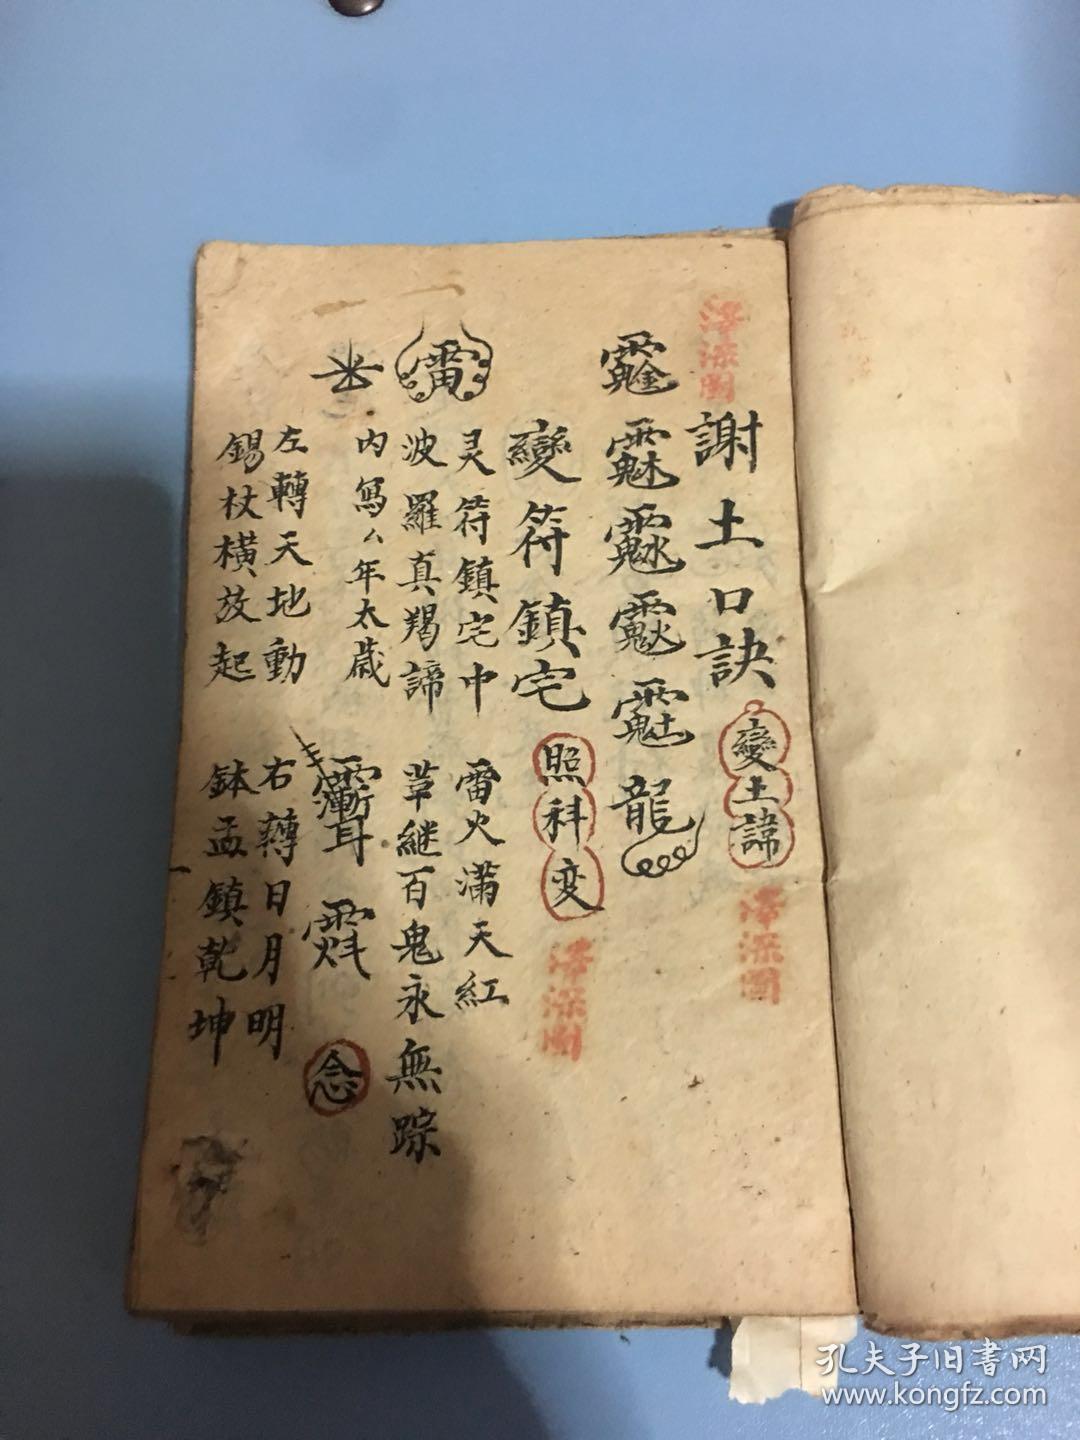 謝土口訣 變土諱
龍
變符鎮宅 照科变
灵符鎮宅中 雷火滿天紅
波羅真羯諦 草継百鬼永無踪
内写厶年太歲 念
左轉天地動 右轉日月明
錫杖橫放起 鉢盂鎮乾坤
孔夫子旧书网
www.kongfz.com